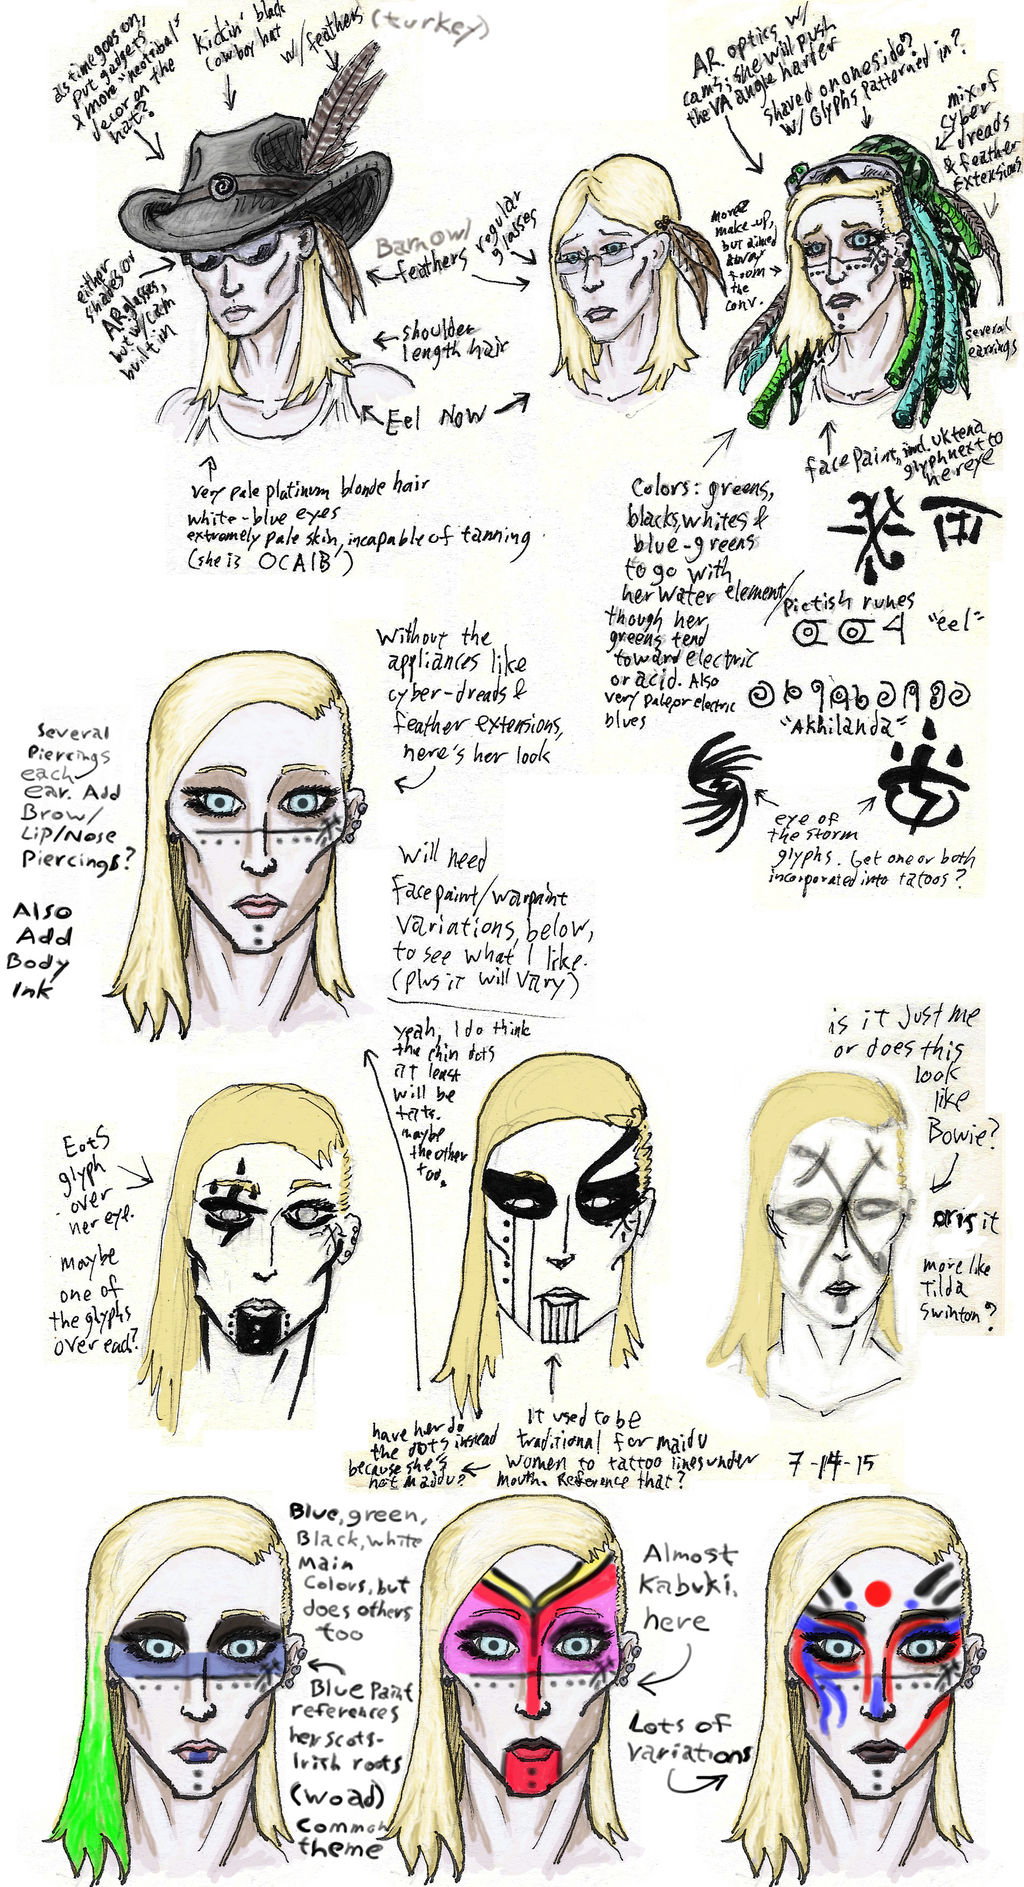 as time goes on,
put gadgets
& more "neotribal"
decor on the
hat?
Kickin' black
cowboy hat
w/ feathers
(turkey)
AR optics w/
cams; she will push
the VA angle harder
shaved on one side?
w/ Glyphs patterned in?
mix of
cyber
dreads
& feather
extensions
either
shades or
AR glasses,
but w/ cam
built in
Barn owl
feathers
regular
glasses
more
make-up,
but aimed
away
from
the
conv.
several
earrings
shoulder
length hair
Eel Now
very pale platinum blonde hair
white-blue eyes
extremely pale skin, incapable of tanning
(she is OCA1B)
face paint, incl. Uktena
glyph next to
her eye
Colors: greens,
blacks, whites &
blue-greens
to go with
her water element/
though her
greens tend
toward electric
or acid. Also
very pale or electric
blues
Pictish runes
"eel"
"Akhilanda"
eye of
the storm
glyphs. Get one or both
incorporated into tatoos?
Without the
appliances like
cyber-dreads &
feather extensions,
here's her look
Several
Piercings
each
ear. Add
Brow/
Lip/Nose
Piercings?
Also
Add
Body
Ink
Will need
facepaint/warpaint
variations, below,
to see what I like.
(plus it will vary)
yeah, I do think
the chin dots
at least
will be
tats.
maybe
the other
too.
is it just me
or does this
look
like
Bowie?
or is it
more like
Tilda
Swinton?
EotS
glyph
over
her eye.
maybe
one of
the glyphs
over each?
have her do
the dots instead
because she's
not maidu?
It used to be
traditional for maidu
women to tattoo lines under
mouth. Reference that?
7-14-15
Blue, green,
Black, white
Main
Colors, but
does others
too
Blue Paint
references
her Scots-
Irish roots
(woad)
Common
theme
Almost
Kabuki,
here
Lots of
variations